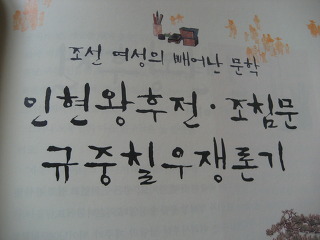 조선 여성의 빼어난 문학
인현왕후전·조침문
규중칠우쟁론기